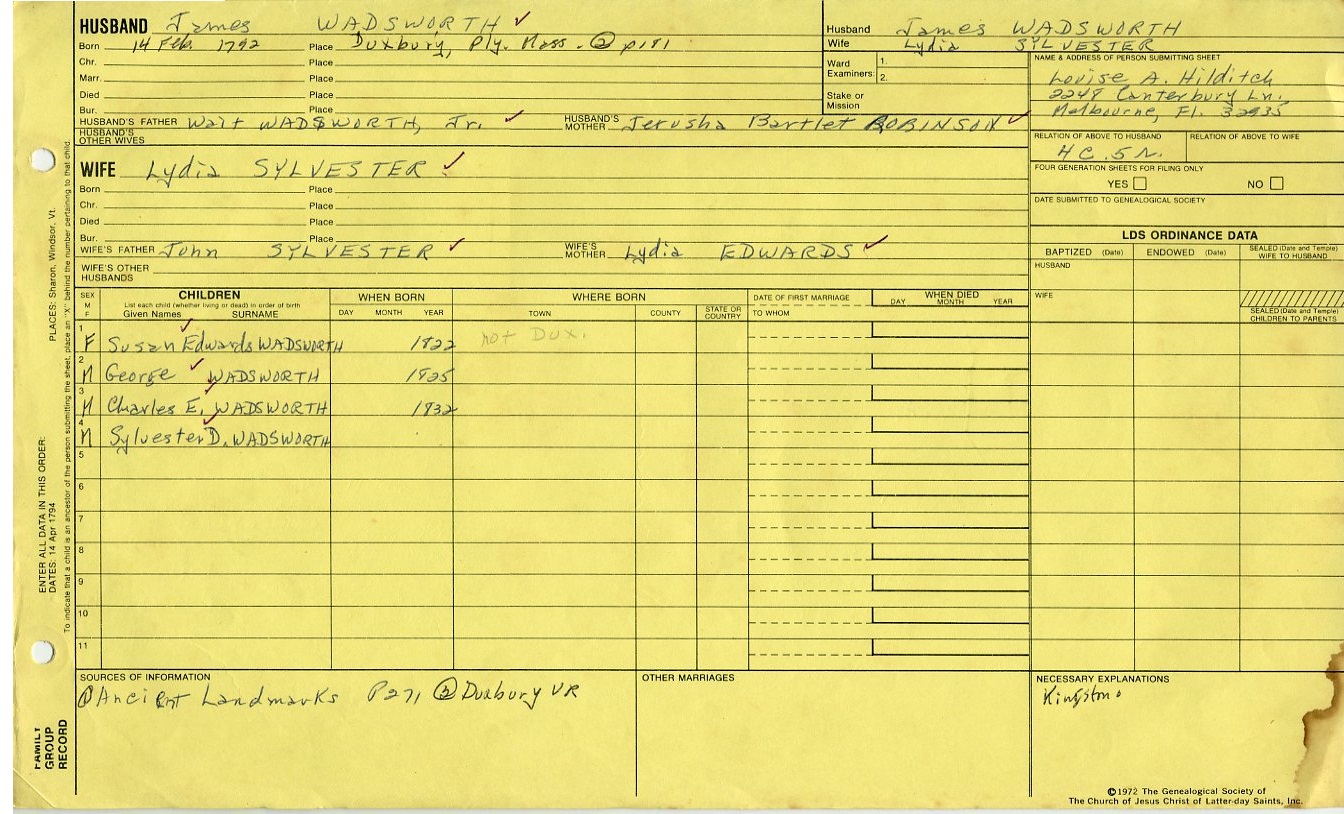 HUSBAND James WADSWORTH ✓
Born 14 Feb. 1792 Place Duxbury, Ply. Mass. ② p181
Chr. Place
Marr. Place
Died Place
Bur. Place
HUSBAND'S FATHER Wait WADSWORTH, Jr. ✓ HUSBAND'S MOTHER Jerusha Bartlet ROBINSON ✓
HUSBAND'S OTHER WIVES
Husband James WADSWORTH
Wife Lydia SYLVESTER
Ward Examiners: 1.
2.
Stake or Mission
NAME & ADDRESS OF PERSON SUBMITTING SHEET
Louise A. Hilditch
2248 Canterbury Ln.
Melbourne, Fl. 32935
RELATION OF ABOVE TO HUSBAND RELATION OF ABOVE TO WIFE
4C.5R.
FOUR GENERATION SHEETS FOR FILING ONLY
YES NO
DATE SUBMITTED TO GENEALOGICAL SOCIETY
WIFE Lydia SYLVESTER ✓
Born Place
Chr. Place
Died Place
Bur. Place
WIFE'S FATHER John SYLVESTER ✓ WIFE'S MOTHER Lydia EDWARDS ✓
WIFE'S OTHER HUSBANDS
LDS ORDINANCE DATA
BAPTIZED (Date) ENDOWED (Date) SEALED (Date and Temple) WIFE TO HUSBAND
HUSBAND
WIFE
SEALED (Date and Temple) CHILDREN TO PARENTS
SEX M F CHILDREN WHEN BORN WHERE BORN DATE OF FIRST MARRIAGE WHEN DIED
List each child (whether living or dead) in order of birth
Given Names SURNAME DAY MONTH YEAR TOWN COUNTY STATE OR COUNTRY TO WHOM DAY MONTH YEAR
1 F Susan Edwards WADSWORTH 1822 not Dux.
2 M George WADSWORTH 1825
3 M Charles E. WADSWORTH 1832
4 M Sylvester D. WADSWORTH
5
6
7
8
9
10
11
SOURCES OF INFORMATION
① Ancient Landmarks P271 ② Duxbury VR
OTHER MARRIAGES
NECESSARY EXPLANATIONS
Kingston
FAMILY GROUP RECORD
ENTER ALL DATA IN THIS ORDER:
DATES: 14 Apr 1794 PLACES: Sharon, Windsor, Vt.
To indicate that a child is an ancestor of the person submitting the sheet, place an "X" behind the number pertaining to that child.
©1972 The Genealogical Society of
The Church of Jesus Christ of Latter-day Saints, Inc.